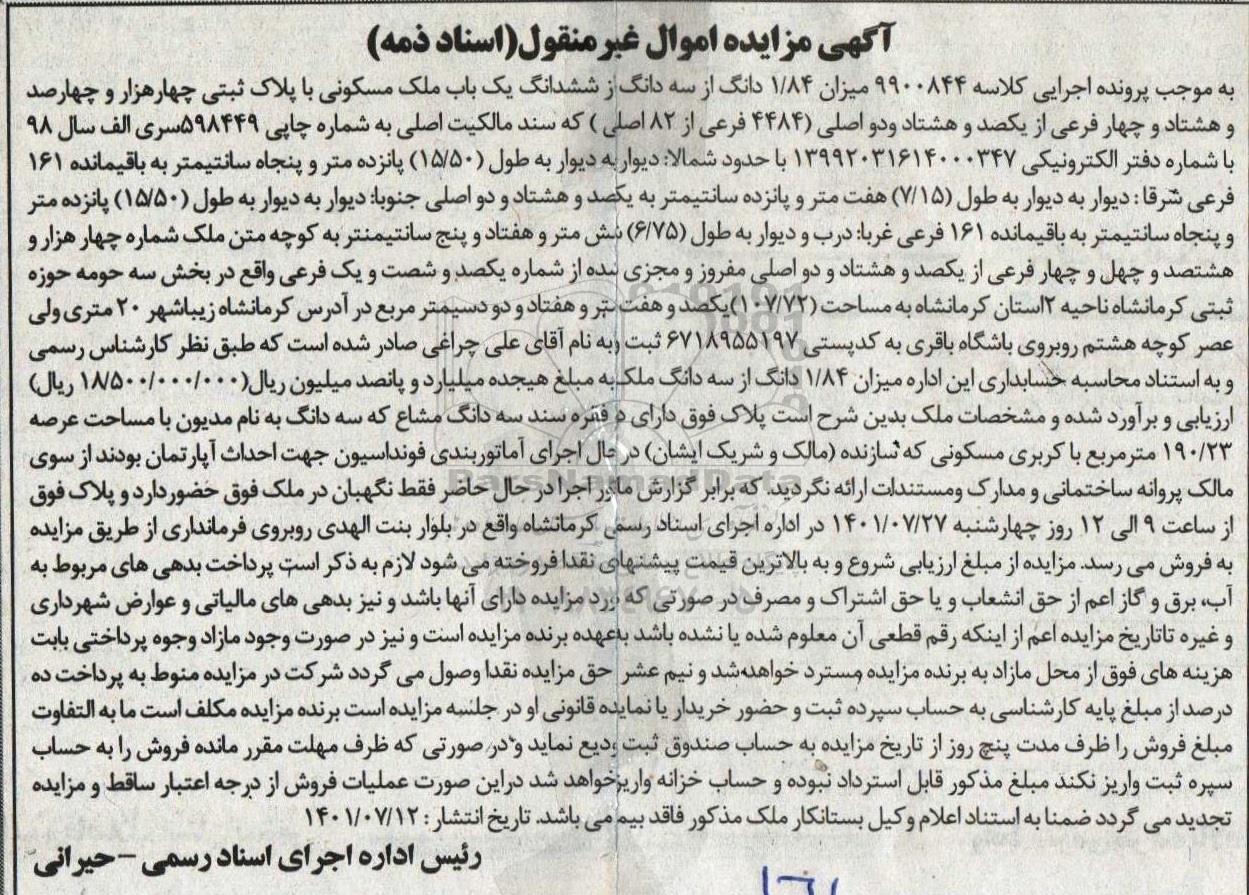 آگهی مزایده اموال غیرمنقول(اسناد ذمه)
به موجب پرونده اجرایی کلاسه ۹۹۰۰۸۴۴ میزان ۱/۸۴ دانگ از سه دانگ از ششدانگ یک باب ملک مسکونی با پلاک ثبتی چهارهزار و چهارصد
و هشتاد و چهار فرعی از یکصد و هشتاد ودو اصلی (۴۴۸۴ فرعی از ۸۲ اصلی ) که سند مالکیت اصلی به شماره چاپی ۵۹۸۴۴۹سری الف سال ۹۸
با شماره دفتر الکترونیکی ۱۳۹۹۲۰۳۱۶۱۴۰۰۰۳۴۷ با حدود شمالا: دیواربه دیوار به طول (۱۵/۵۰) پانزده متر و پنجاه سانتیمتر به باقیمانده ۱۶۱
فرعی شرقا : دیوار به دیوار به طول (۷/۱۵) هفت متر و پانزده سانتیمتر به یکصد و هشتاد و دو اصلی جنوبا: دیوار به دیوار به طول (۱۵/۵۰) پانزده متر
و پنجاه سانتیمتر به باقیمانده ۱۶۱ فرعی غربا: درب و دیوار به طول (۶/۷۵) شش متر و هفتاد و پنج سانتیمنتر به کوچه متن ملک شماره چهار هزار و
هشتصد و چهل و چهار فرعی از یکصد و هشتاد و دو اصلی مفروز و مجزی شده از شماره یکصد و شصت و یک فرعی واقع در بخش سه حومه حوزه
ثبتی کرمانشاه ناحیه ۲استان کرمانشاه به مساحت (۱۰۷/۷۲)یکصد و هفت متر و هفتاد و دو دسیمتر مربع در آدرس کرمانشاه زیباشهر ۲۰ متری ولی
عصر کوچه هشتم روبروی باشگاه باقری به کدپستی ۶۷۱۸۹۵۵۱۹۷ ثبت وبه نام آقای علی چراغی صادر شده است که طبق نظر کارشناس رسمی
و به استناد محاسبه حسابداری این اداره میزان ۱/۸۴ دانگ از سه دانگ ملک به مبلغ هیجده میلیارد و پانصد میلیون ریال(۱۸/۵۰۰/۰۰۰/۰۰۰ ریال)
ارزیابی و برآورد شده و مشخصات ملک بدین شرح است پلاک فوق دارای فقره سند سه دانگ مشاع که سه دانگ به نام مدیون با مساحت عرصه
۱۹۰/۲۳ مترمربع با کربری مسکونی که سازنده (مالک و شریک ایشان) درحال اجرای آماتوربندی فونداسیون جهت احداث آپارتمان بودند از سوی
مالک پروانه ساختمانی و مدارک ومستندات ارائه نگردید. که برابر گزارش مامور اجرا در حال حاضر فقط نگهبان در ملک فوق حضوردارد و پلاک فوق
از ساعت ۹ الی ۱۲ روز چهارشنبه ۱۴۰۱/۰۷/۲۷ در اداره اجرای اسناد رسمی کرمانشاه واقع در بلوار بنت الهدی روبروی فرمانداری از طریق مزایده
به فروش می رسد. مزایده از مبلغ ارزیابی شروع و به بالاترین قیمت پیشنهای نقدا فروخته می شود لازم به ذکر است پرداخت بدهی های مربوط به
آب، برق و گاز اعم از حق انشعاب و یا حق اشتراک و مصرف در صورتی که مورد مزایده دارای آنها باشد و نیز بدهی های مالیاتی و عوارض شهرداری
و غیره تاتاریخ مزایده اعم از اینکه رقم قطعی آن معلوم شده یا نشده باشد به عهده برنده مزایده است و نیز در صورت وجود مازاد وجوه پرداختی بابت
هزینه های فوق از محل مازاد به برنده مزایده مسترد خواهدشد و نیم عشر حق مزایده نقدا وصول می گردد شرکت در مزایده منوط به پرداخت ده
درصد از مبلغ پایه کارشناسی به حساب سپرده ثبت و حضور خریدار یا نماینده قانونی او در جلسه مزایده است برنده مزایده مکلف است ما به التفاوت
مبلغ فروش را ظرف مدت پنج روز از تاریخ مزایده به حساب صندوق ثبت ودیع نماید و در صورتی که ظرف مهلت مقرر مانده فروش را به حساب
سپره ثبت واریز نکند مبلغ مذکور قابل استرداد نبوده و حساب خزانه واریزخواهد شد دراین صورت عملیات فروش از درجه اعتبار ساقط و مزایده
تجدید می گردد ضمنا به استناد اعلام وکیل بستانکار ملک مذکور فاقد بیمه می باشد. تاریخ انتشار : ۱۴۰۱/۰۷/۱۲
رئیس اداره اجرای اسناد رسمی – حیرانی
ParsNamadData